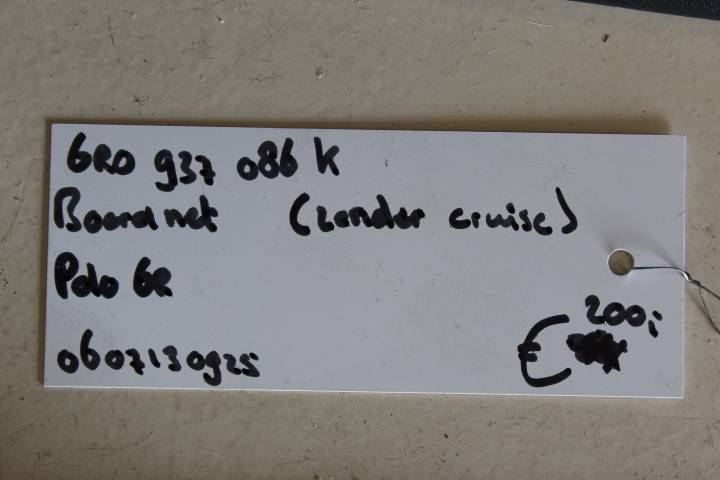 6R0 937 086 K
Boordnet (zonder cruise)
Polo 6R
200,-
0607130925 €